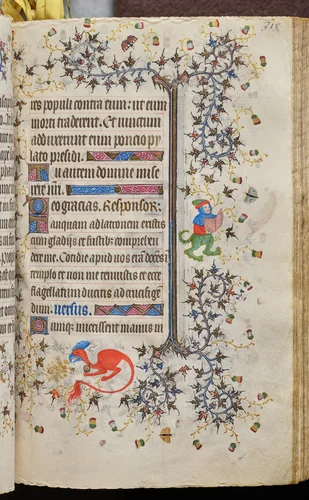 tes populi contra eum: ut eum
morti traderent. Et vinctum
adduxerunt eum poncio py
lato presidi.
Tu autem domine mise
rere nr̄i.
Deo gracias. Responsor:
Tanquam ad latronem existis
cum gladijs et fustib: comprehen
dere me. Cotidie apud vos erā docēs ī
templo et non me tenuistis et ecce
flagellatum ducitis ad crucifige
dum. versus.
Cumq: iniecissent manus in